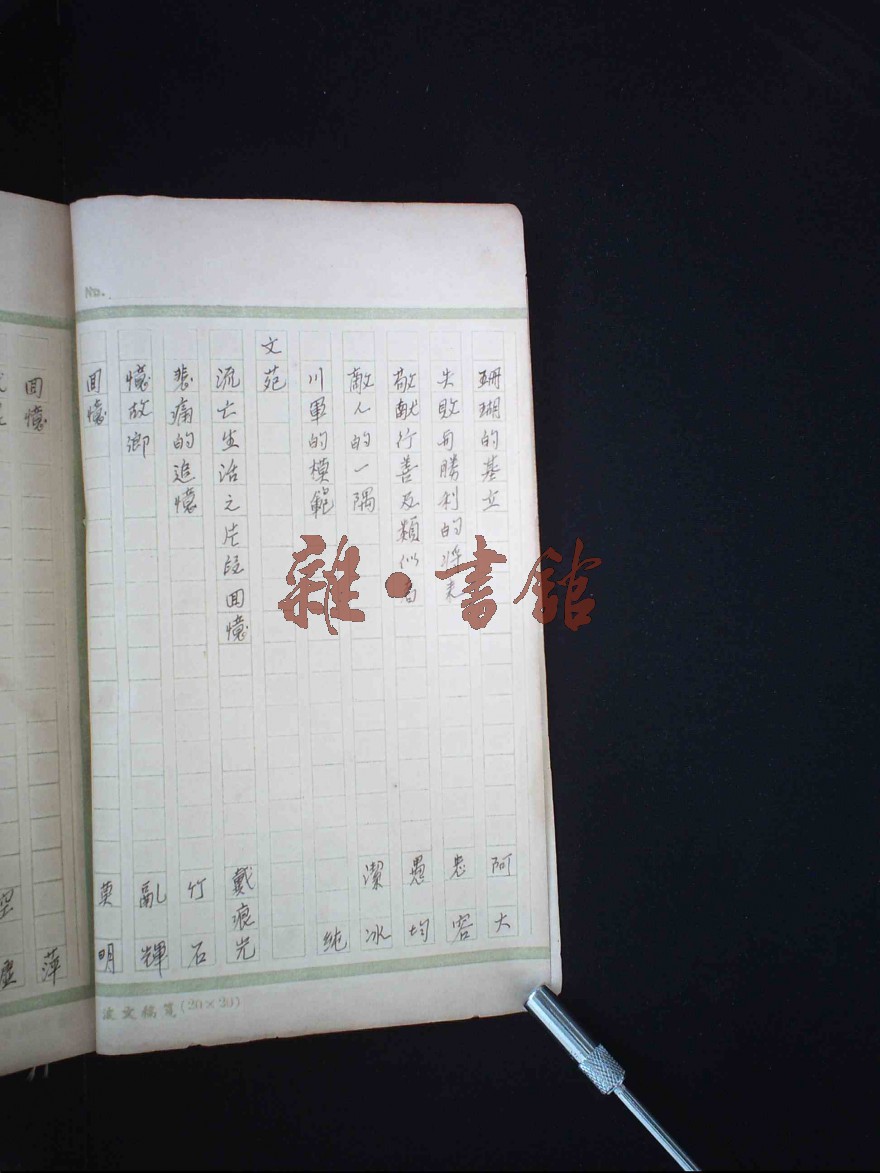 No.
珊瑚的基立 阿大
失敗与勝利的將来 忠容
敬献行善及類似 愚均
敵人的一隅 潔冰
川軍的模範 純
文苑
流亡生活之片段回憶 戴痕光
悲痛的追憶 竹石
憶故鄉 亂輝
回憶 莫明
回憶 萍
空塵
文稿箋(20×20)
雜·書館